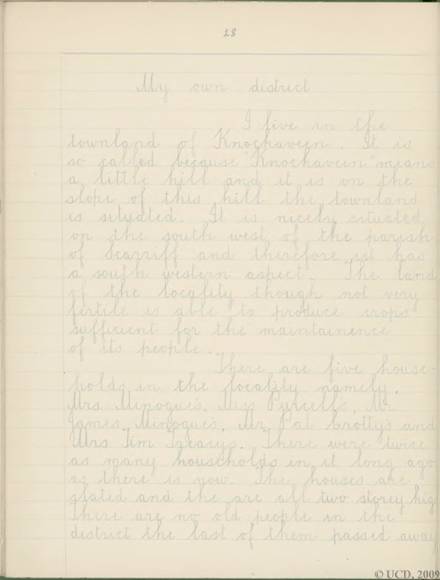 28
My own district
I live in the
townland of Knockaveen. It is
so called because "Knockaveen" means
a little hill and it is on the
slope of this hill the townland
is situated. It is nicely situated
on the south west of the parish
of Scarriff and therefore it has
a south western aspect. The land
of the locality though not very
fertile is able to produce crops
sufficient for the maintainence
of its people.
There are five house-
holds in the locality namely,
Mrs Minogue's, Miss Purcell's, Mr
James Minogue's, Mr Pat Brottys and
Mrs Jim There were twice
as many households in it long ago
as there is now. The houses are
slated and the are all two storey high
There are no old people in the
district the last of them passed away
© UCD, 2009